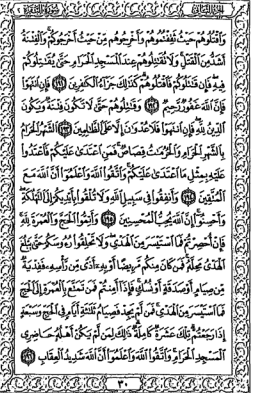 وَاقْتُلُوهُمْ حَيْثُ ثَقِفْتُمُوهُمْ وَأَخْرِجُوهُمْ مِنْ حَيْثُ أَخْرَجُوكُمْ وَالْفِتْنَةُ
أَشَدُّ مِنَ الْقَتْلِ وَلَا تُقَاتِلُوهُمْ عِنْدَ الْمَسْجِدِ الْحَرَامِ حَتَّى يُقَاتِلُوكُمْ
فِيهِ فَإِنْ قَاتَلُوكُمْ فَاقْتُلُوهُمْ كَذَلِكَ جَزَاءُ الْكَافِرِينَ ﴿١٩١﴾ فَإِنِ انْتَهَوْا
فَإِنَّ اللَّهَ غَفُورٌ رَحِيمٌ ﴿١٩٢﴾ وَقَاتِلُوهُمْ حَتَّى لَا تَكُونَ فِتْنَةٌ وَيَكُونَ
الدِّينُ لِلَّهِ فَإِنِ انْتَهَوْا فَلَا عُدْوَانَ إِلَّا عَلَى الظَّالِمِينَ ﴿١٩٣﴾ الشَّهْرُ الْحَرَامُ
بِالشَّهْرِ الْحَرَامِ وَالْحُرُمَاتُ قِصَاصٌ فَمَنِ اعْتَدَى عَلَيْكُمْ فَاعْتَدُوا
عَلَيْهِ بِمِثْلِ مَا اعْتَدَى عَلَيْكُمْ وَاتَّقُوا اللَّهَ وَاعْلَمُوا أَنَّ اللَّهَ مَعَ
الْمُتَّقِينَ ﴿١٩٤﴾ وَأَنْفِقُوا فِي سَبِيلِ اللَّهِ وَلَا تُلْقُوا بِأَيْدِيكُمْ إِلَى التَّهْلُكَةِ
وَأَحْسِنُوا إِنَّ اللَّهَ يُحِبُّ الْمُحْسِنِينَ ﴿١٩٥﴾ وَأَتِمُّوا الْحَجَّ وَالْعُمْرَةَ لِلَّهِ
فَإِنْ أُحْصِرْتُمْ فَمَا اسْتَيْسَرَ مِنَ الْهَدْيِ وَلَا تَحْلِقُوا رُءُوسَكُمْ حَتَّى يَبْلُغَ
الْهَدْيُ مَحِلَّهُ فَمَنْ كَانَ مِنْكُمْ مَرِيضًا أَوْ بِهِ أَذًى مِنْ رَأْسِهِ فَفِدْيَةٌ
مِنْ صِيَامٍ أَوْ صَدَقَةٍ أَوْ نُسُكٍ فَإِذَا أَمِنْتُمْ فَمَنْ تَمَتَّعَ بِالْعُمْرَةِ إِلَى الْحَجِّ
فَمَا اسْتَيْسَرَ مِنَ الْهَدْيِ فَمَنْ لَمْ يَجِدْ فَصِيَامُ ثَلَاثَةِ أَيَّامٍ فِي الْحَجِّ وَسَبْعَةٍ
إِذَا رَجَعْتُمْ تِلْكَ عَشَرَةٌ كَامِلَةٌ ذَلِكَ لِمَنْ لَمْ يَكُنْ أَهْلُهُ حَاضِرِي
الْمَسْجِدِ الْحَرَامِ وَاتَّقُوا اللَّهَ وَاعْلَمُوا أَنَّ اللَّهَ شَدِيدُ الْعِقَابِ ﴿١٩٦﴾
٣٠